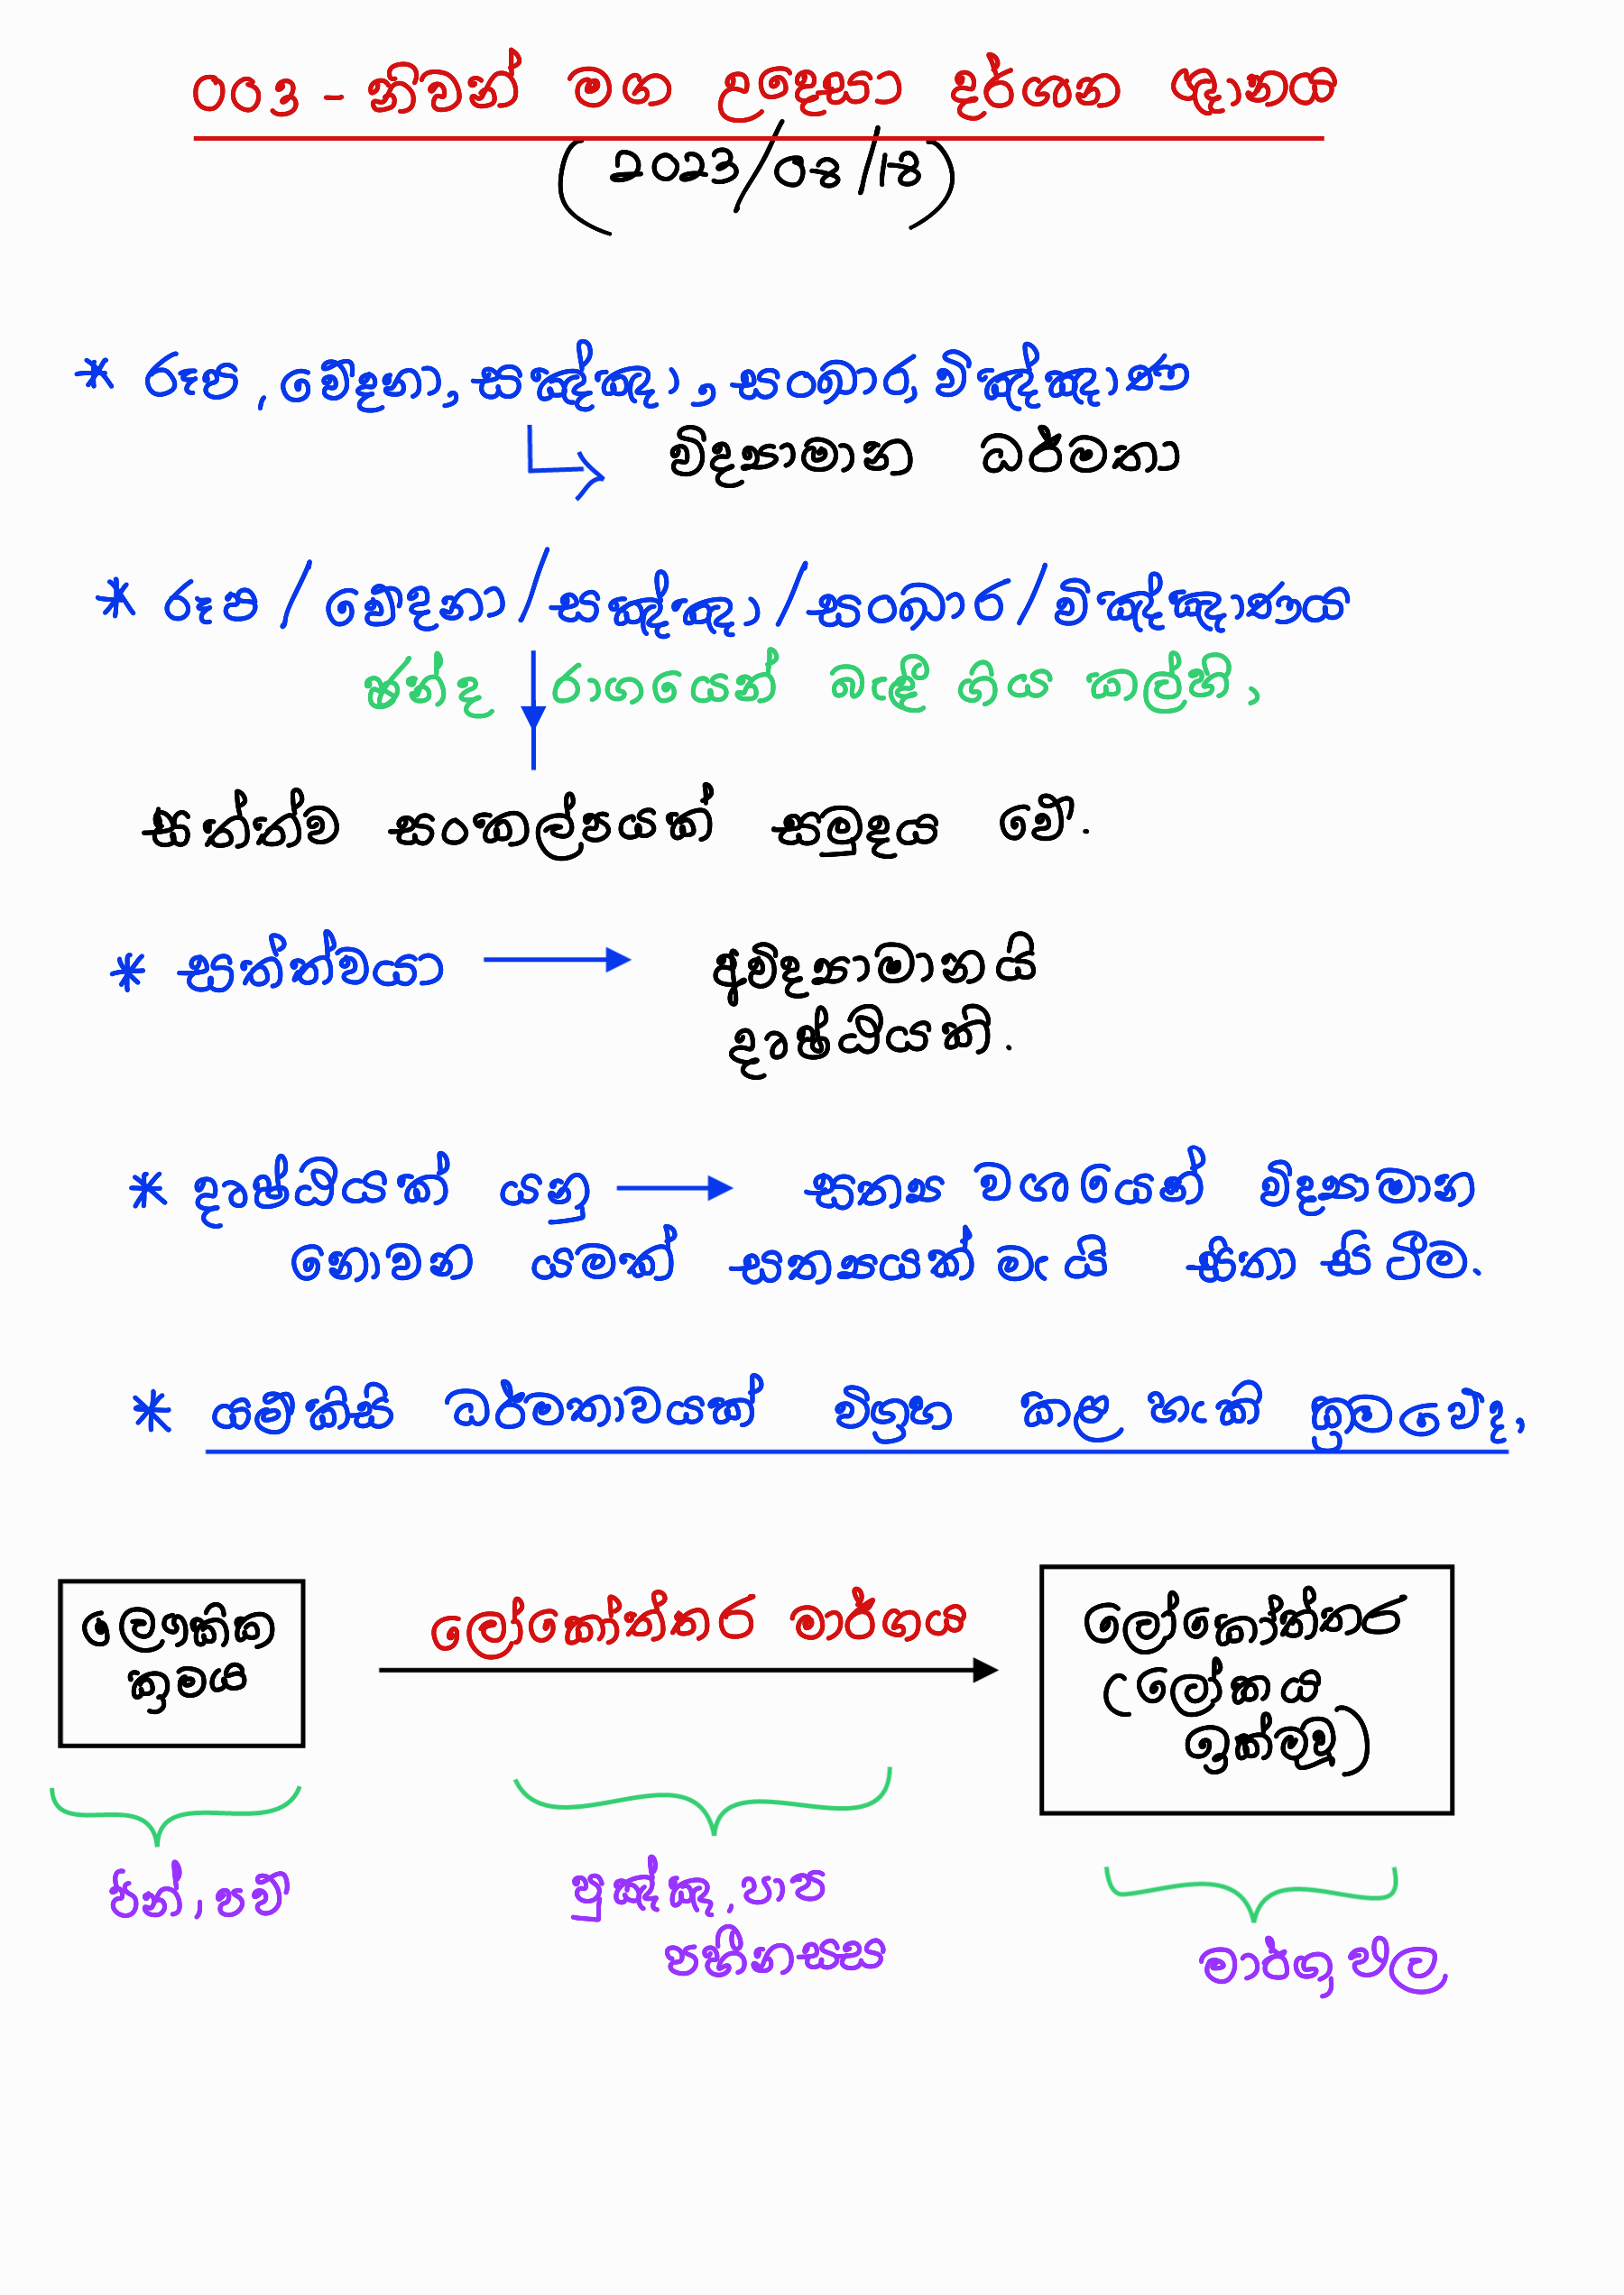 003 - නිවන් මග උදෙසා දර්ශන ඥානය
(2023/08/18)
* රූප, වේදනා, සඤ්ඤා, සංඛාර, විඤ්ඤාණ
විද්‍යාමාන ධර්මතා
* රූප / වේදනා / සඤ්ඤා / සංඛාර / විඤ්ඤාණය
ඡන්ද රාගයෙන් බැඳී ගිය කල්හි,
සත්ත්ව සංකල්පයක් සමුදය වේ.
* සත්ත්වයා → අවිද්‍යාමානයි
දෘෂ්ඨියකි.
* දෘෂ්ඨියක් යනු → සත්‍ය වශයෙන් විද්‍යාමාන
නොවන යමක් සත්‍යයක් මැයි සිතා සිටීම.
* යම්කිසි ධර්මතාවයක් විග්‍රහ කළ හැකි ක්‍රමවේද,
ලෞකික
ක්‍රමය
ලෝකෝත්තර මාර්ගය
ලෝකෝත්තර
(ලෝකය
ඉක්මවූ)
පින්, පව්
පුඤ්ඤ, පාප
පහීනස්ස
මාර්ග ඵල